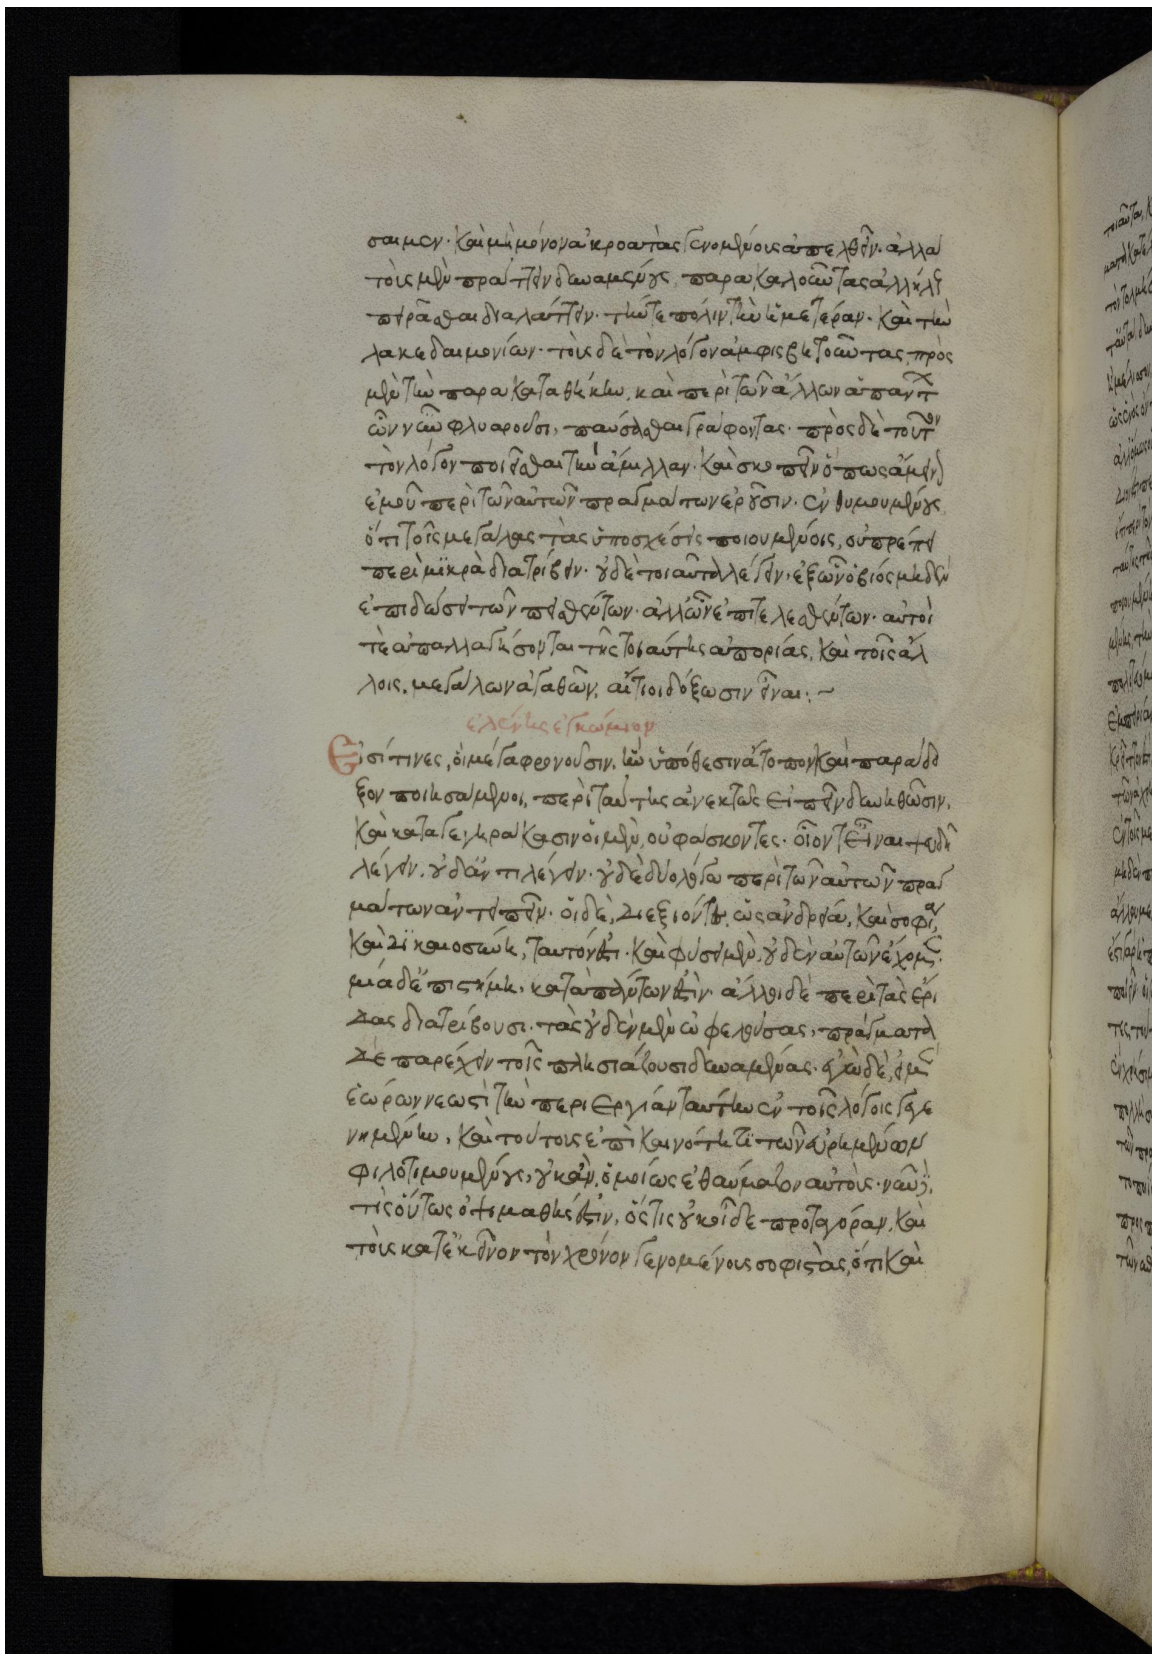 σαιμεν· καὶ μὴ μόνον ἀκροατὰς γενομένους ἀπελθεῖν· ἀλλὰ
τοὺς μὲν πράττειν δυναμένους, παρακαλοῦντας ἀλλήλους
πειρᾶσθαι διαλάττειν· τήν τε πόλιν τὴν ἡμετέραν· καὶ τὴν
λακεδαιμονίων· τοὺς δὲ τὸν λόγον ἀμφισβητοῦντας, πρὸς
μὲν τὴν παρακαταθήκην, καὶ περὶ τῶν ἄλλων ἁπάντων
ὧν νῦν φλυαροῦσι, παύσασθαι γράφοντας· πρὸς δὲ τοῦτον
τὸν λόγον ποιεῖσθαι τὴν ἅμιλλαν· καὶ σκοπεῖν ὅπως ἄμεινον
ἐμοῦ περὶ τῶν αὐτῶν πραγμάτων ἐροῦσιν· ἐνθυμουμένους,
ὅτι τοῖς μεγάλας τὰς ὑποσχέσεις ποιουμένοις, οὐ πρέπει
περὶ μικρὰ διατρίβειν· οὐδὲ τοιαῦτα λέγειν, ἐξ ὧν ὁ βίος μηδὲν
ἐπιδώσει τῶν πεισθέντων· ἀλλ' ὧν ἐπιτελεσθέντων· αὐτοί
τε ἀπαλλαγήσονται τῆς τοιαύτης ἀπορίας, καὶ τοῖς ἄλ
λοις, μεγάλων ἀγαθῶν, αἴτιοι δόξωσιν εἶναι: ~
ἑλένης ἐγκώμιον
Εἰσί τινες, οἳ μέγα φρονοῦσιν, ἢν ὑπόθεσιν ἄτοπον καὶ παράδο
ξον ποιησάμενοι, περὶ ταύτης ἀνεκτῶς εἰπεῖν δυνηθῶσιν,
καὶ καταγεγηράκασιν οἱ μὲν, οὐ φάσκοντες· οἷόν τ' εἶναι ψευδῆ
λέγειν, οὐδ' ἀντιλέγειν· οὐδὲ δύο λόγω περὶ τῶν αὐτῶν πραγ
μάτων ἀντειπεῖν· οἱ δὲ, διεξιόντες, ὡς ἀνδρεία, καὶ σοφία,
καὶ δικαιοσύνη, ταυτόν ἐστι· καὶ φύσει μὲν, οὐδὲν αὐτῶν ἔχομεν·
μία δ' ἐπιστήμη, κατὰ πάντων ἐστίν· ἄλλοι δὲ περὶ τὰς ἔρι
δας διατρίβουσι· τὰς οὐδὲν μὲν ὠφελούσας, πράγματα
δὲ παρέχειν τοῖς πλησιάζουσι δυναμένας· ἐγὼ δὲ, εἰ μὲν
ἑώρων νεωστὶ τὴν περιεργίαν ταύτην ἐν τοῖς λόγοις ἐγγεγε
νημένην, καὶ τούτους ἐπὶ καινότητι τῶν εὑρημένων
φιλοτιμουμένους, οὐκ ἂν, ὁμοίως ἐθαύμαζον αὐτούς· νῦν δὲ,
τίς οὕτως ὀψιμαθής ἐστιν, ὅστις οὐκ οἶδε πρωταγόραν, καὶ
τοὺς κατ' ἐκεῖνον τὸν χρόνον γενομένους σοφιστὰς, ὅτι καὶ